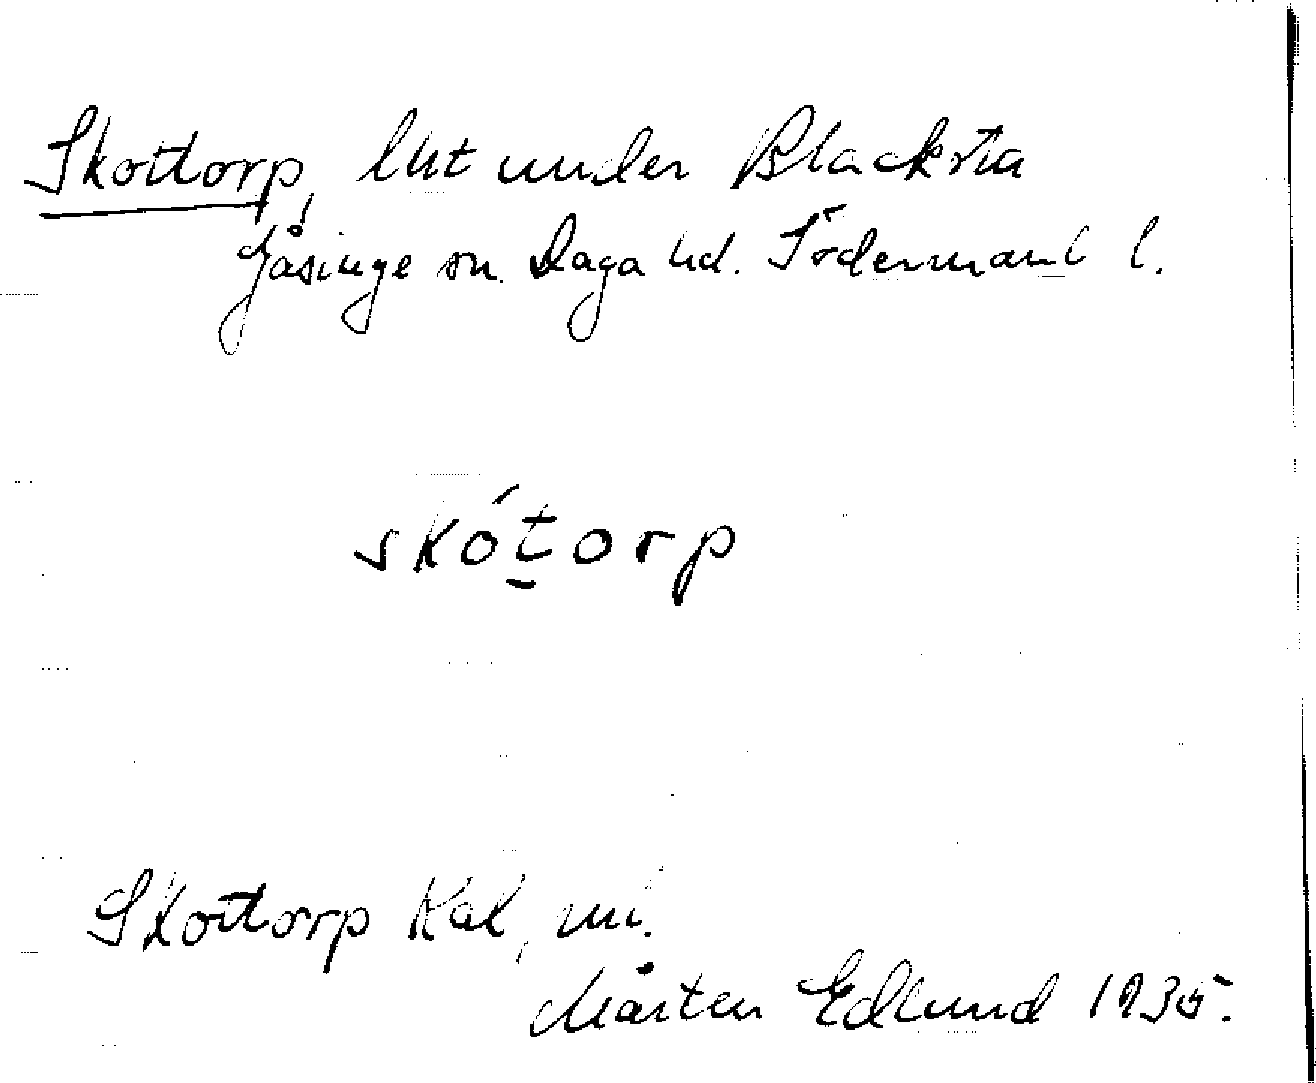 Skottorp, lht under Blacksta
Gåsinge sn. Daga hd. Södermanl l.
skó́t̠orp
Skottorp Kal, mi.
Mårten Edlund 1935.